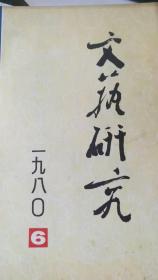 文藝研究
一九八〇
6